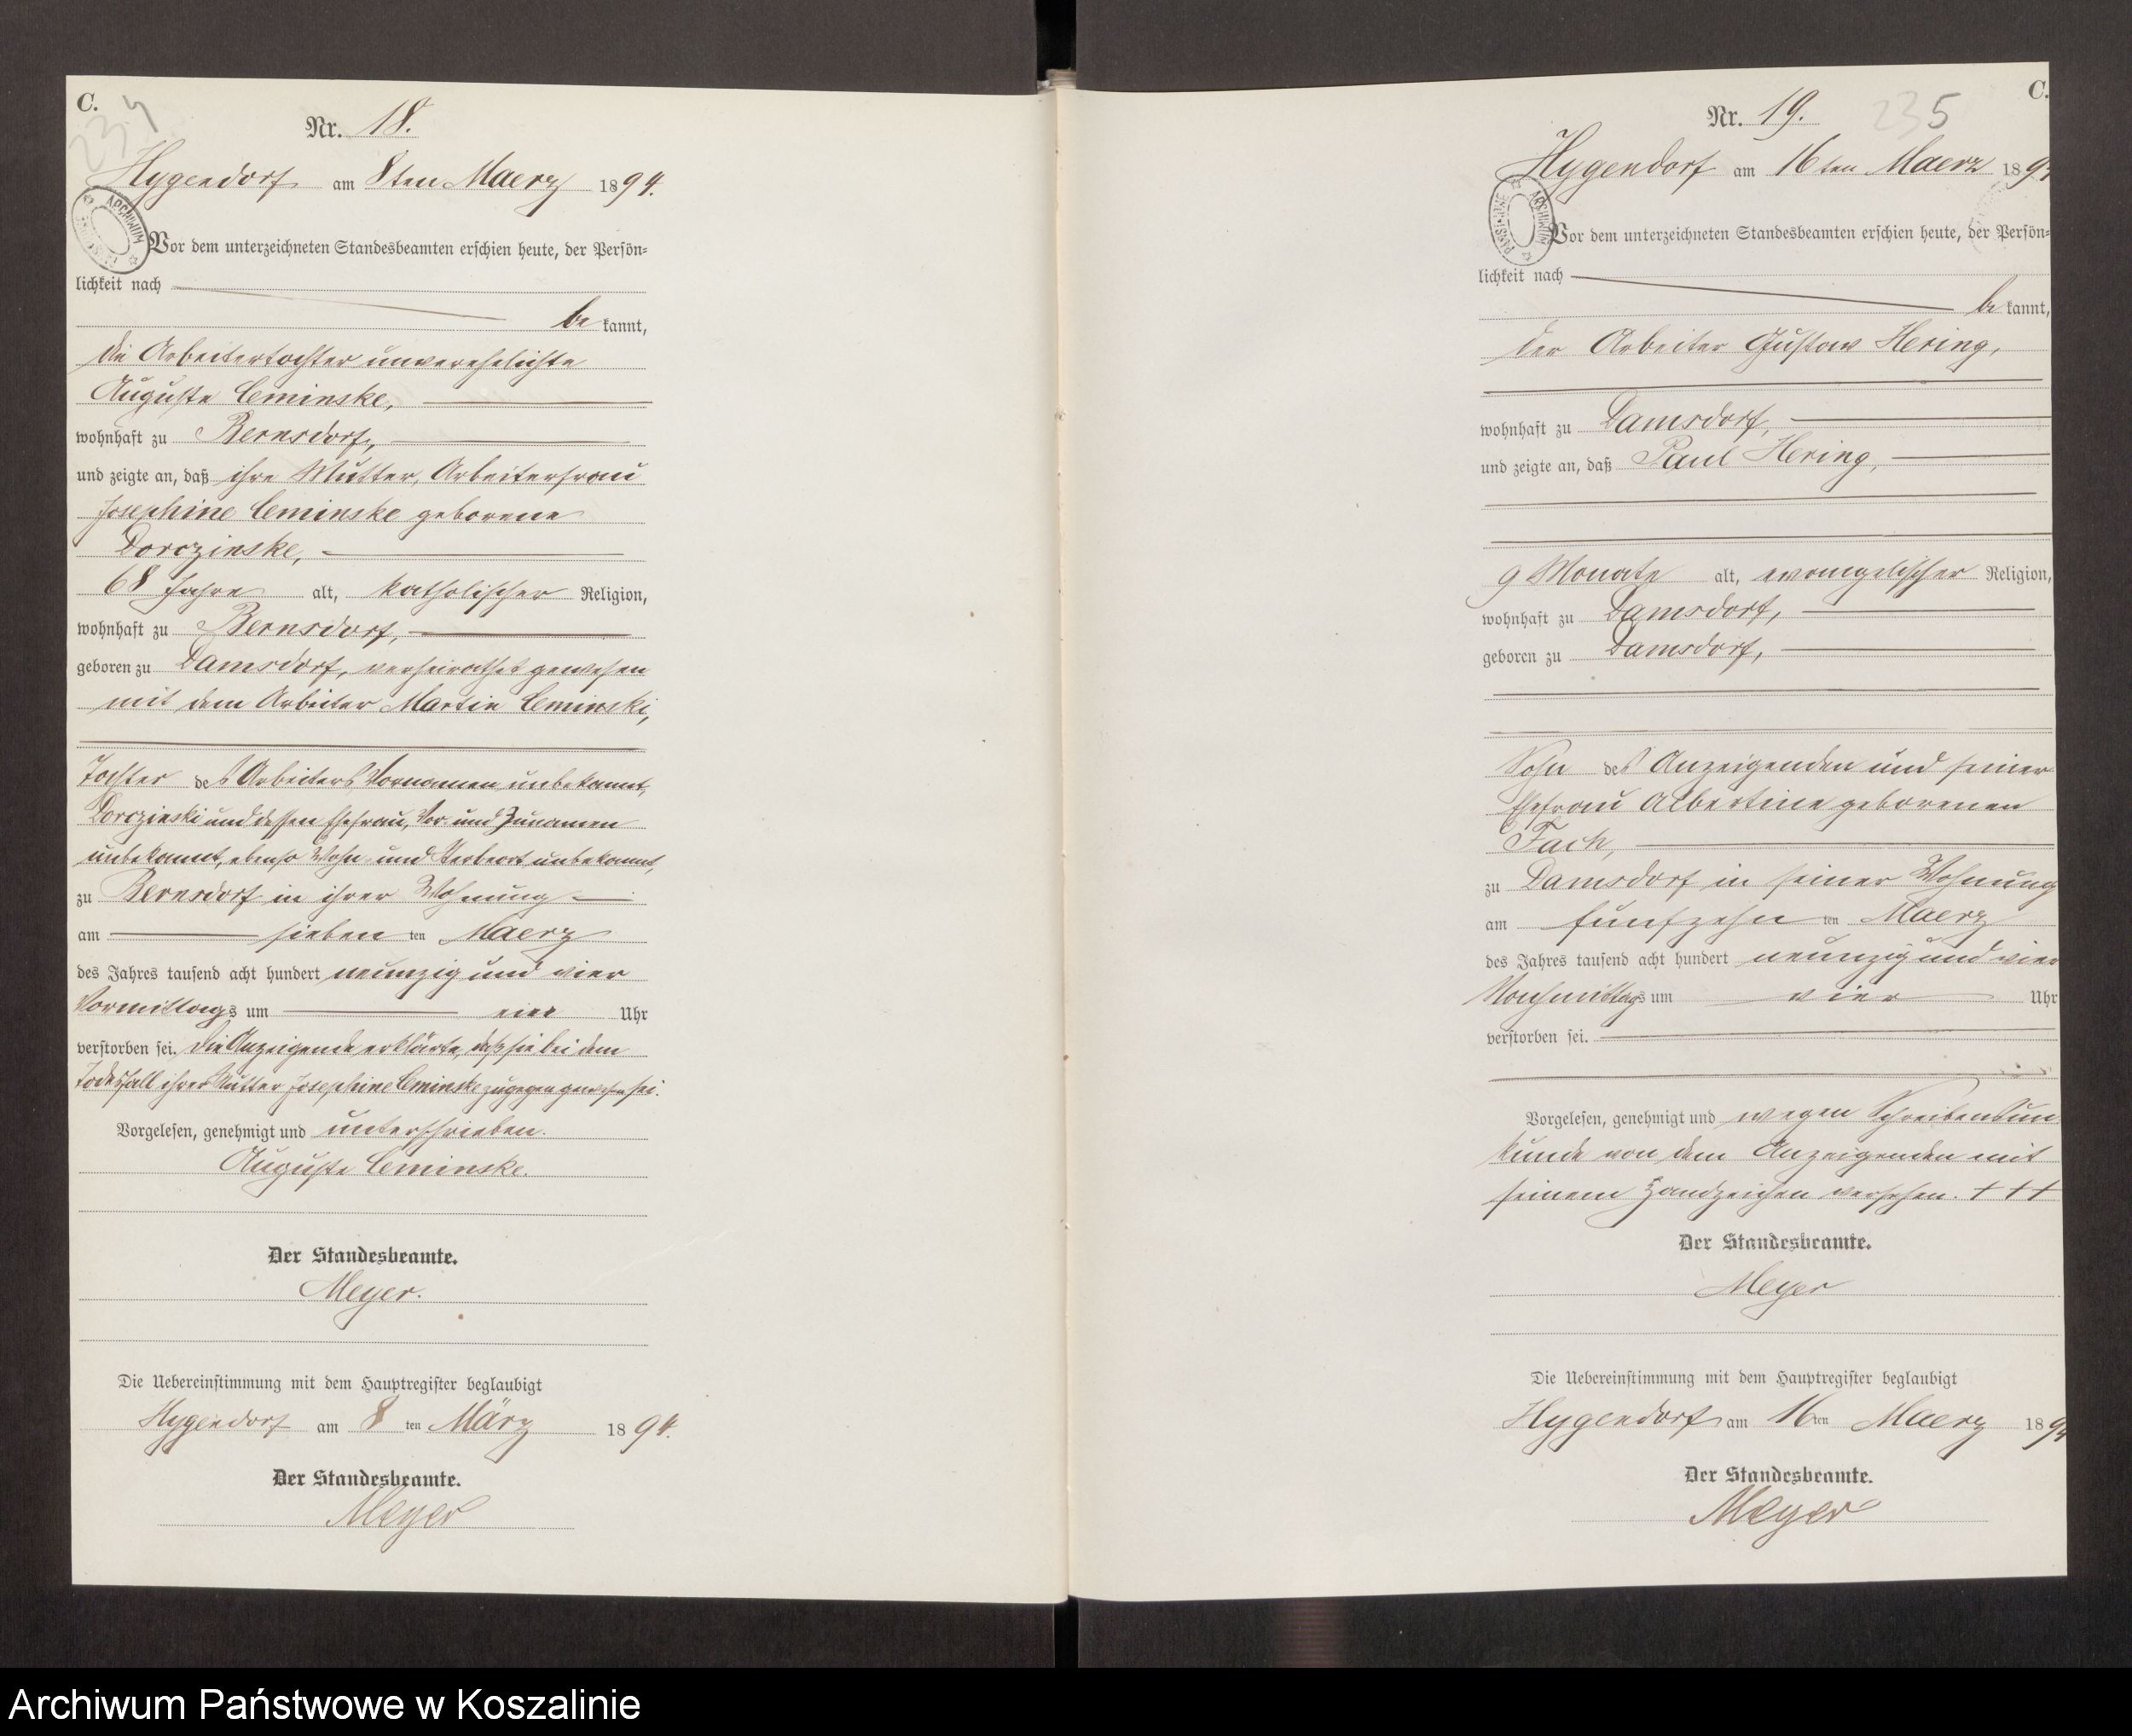 C.
234
Nr. 18.
Hygendorf am 8ten Maerz 1894.
ARCHIWUM
Vor dem unterzeichneten Standesbeamten erschien heute, der Persön-
lichkeit nach
be kannt,
die Arbeitertochter unverehelichte
Auguste Ceminske,
wohnhaft zu Bernsdorf,
und zeigte an, daß ihre Mutter, Arbeiterfrau
Josephine Ceminske geborene
Dorczinske,
68 Jahre alt, katholischer Religion,
wohnhaft zu Bernsdorf,
geboren zu Damsdorf, verheirathet gewesen
mit dem Arbeiter Martin Ceminski,
Tochter des Arbeiters, Vornamen unbekannt,
Dorczinski und dessen Ehefrau, Vor- und Zunamen
unbekannt, ebenso Wohn- und Sterbeort unbekannt,
zu Bernsdorf in ihrer Wohnung
am sieben ten Maerz
des Jahres tausend acht hundert neunzig und vier
Vormittags um vier Uhr
verstorben sei. Die Anzeigende erklärte, daß sie bei dem
Todesfall ihrer Mutter Josephine Ceminske zugegen gewesen sei.
Vorgelesen, genehmigt und unterschrieben.
Auguste Ceminske.
Der Standesbeamte.
Meyer.
Die Uebereinstimmung mit dem Hauptregister beglaubigt
Hygendorf am 8 ten März 1894.
Der Standesbeamte.
Meyer
C.
235
Nr. 19.
Hygendorf am 16ten Maerz 1894
ARCHIWUM
Vor dem unterzeichneten Standesbeamten erschien heute, der Persön-
lichkeit nach
be kannt,
der Arbeiter Gustav Hering,
wohnhaft zu Damsdorf,
und zeigte an, daß Paul Hering,
9 Monate alt, evangelischer Religion,
wohnhaft zu Damsdorf,
geboren zu Damsdorf,
Sohn des Anzeigenden und seiner
Ehefrau Albertine geborenen
Fach,
zu Damsdorf in seiner Wohnung
am fünfzehn ten Maerz
des Jahres tausend acht hundert neunzig und vier
Nachmittags um vier Uhr
verstorben sei.
Vorgelesen, genehmigt und wegen Schreibensun
kunde von dem Anzeigenden mit
seinem Handzeichen versehen. + + +
Der Standesbeamte.
Meyer
Die Uebereinstimmung mit dem Hauptregister beglaubigt
Hygendorf am 16 ten Maerz 1894
Der Standesbeamte.
Meyer
Archiwum Państwowe w Koszalinie